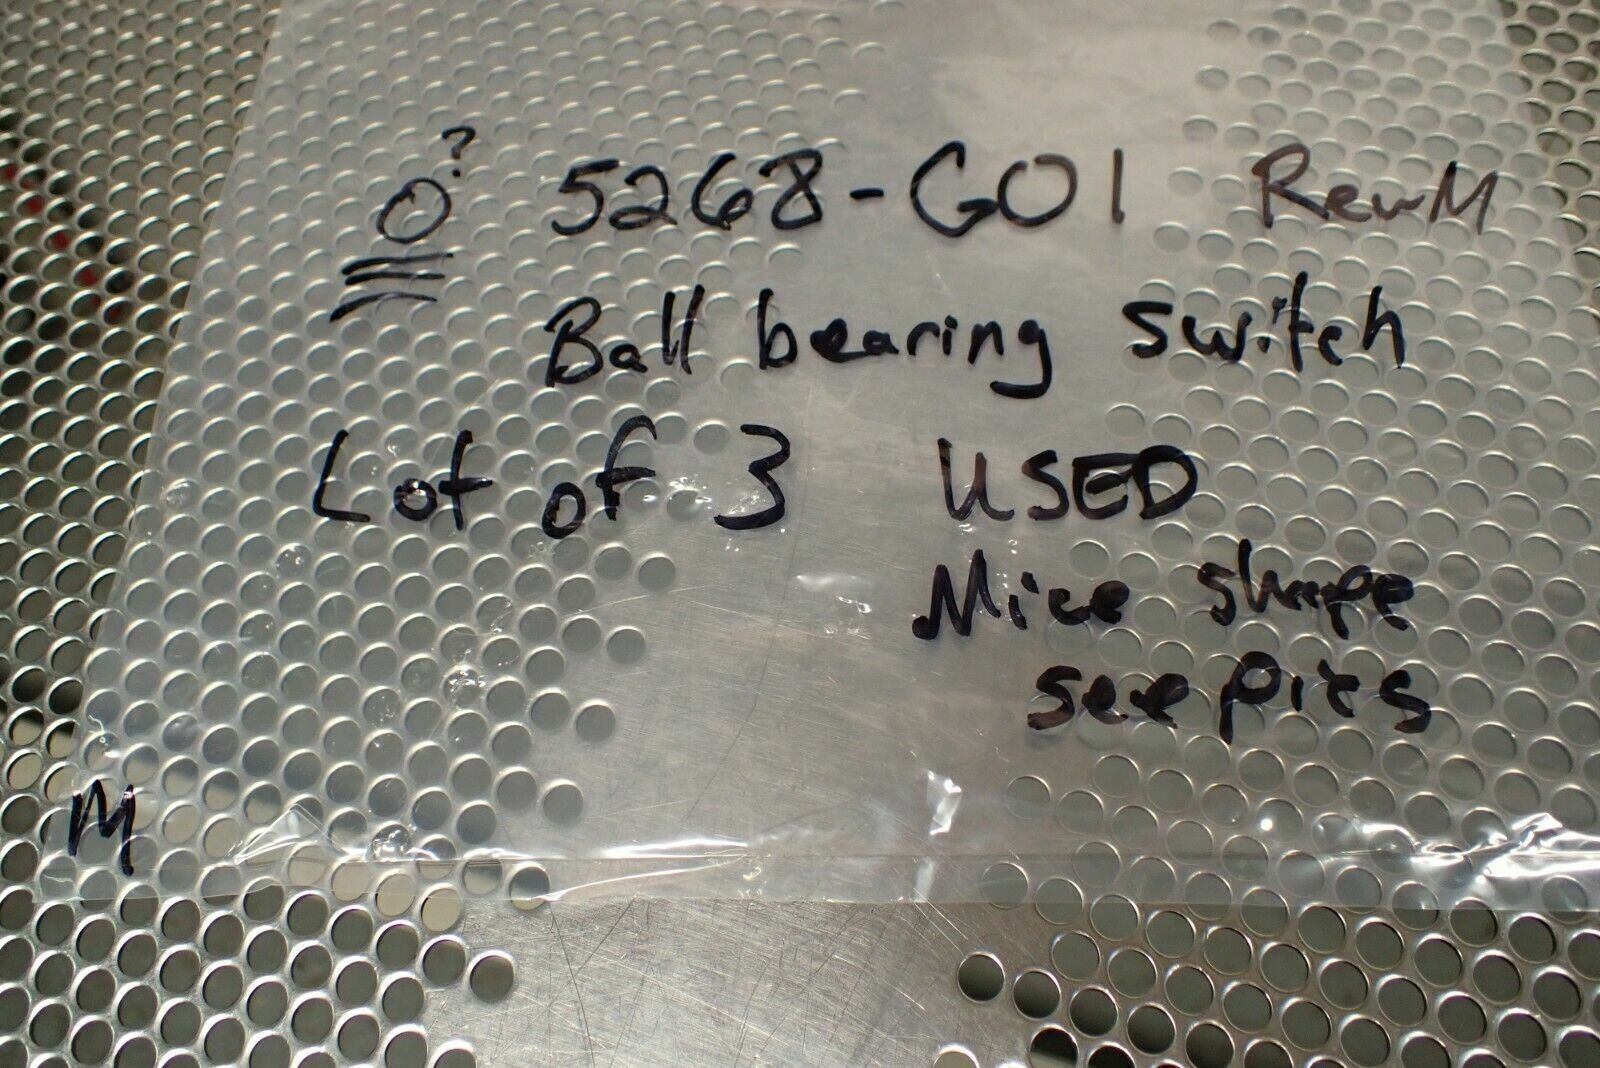 O? 5268-G01 Rev M
Ball bearing switch
Lot of 3 USED
Nice shape
see pics
M